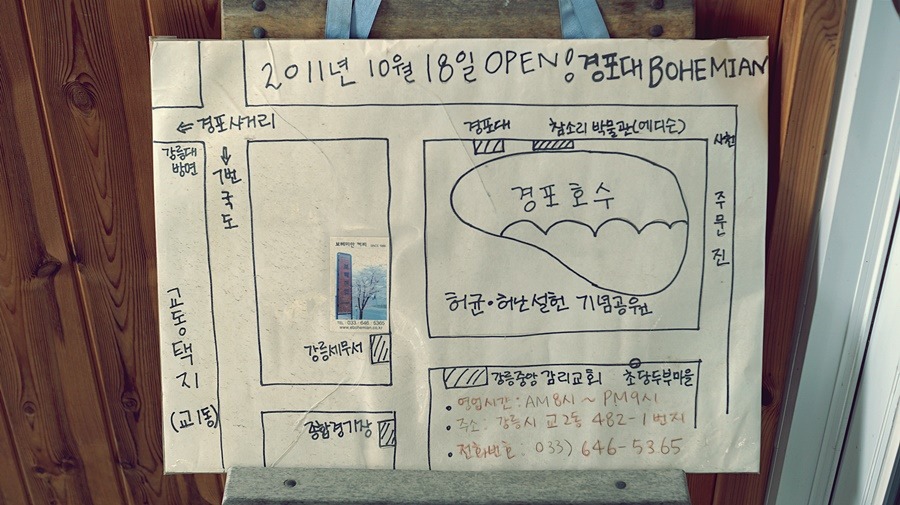 2011년 10월 18일 OPEN! 경포대 BOHEMIAN
⇐ 경포사거리
경포대
참소리 박물관(에디슨)
사천
강릉대
방면
7번
국
도
주
문
진
경포호수
보헤미안 커피
TEL : 033 - 646 - 5365
허균·허난설헌 기념공원
교
동
택
지
(교1동)
강릉세무서
강릉중앙 감리교회
초당두부마을
종합경기장
• 영업시간 : AM 8시 ~ PM 9시
• 주소 : 강릉시 교2동 482-1번지
• 전화번호 : 033) 646-5365